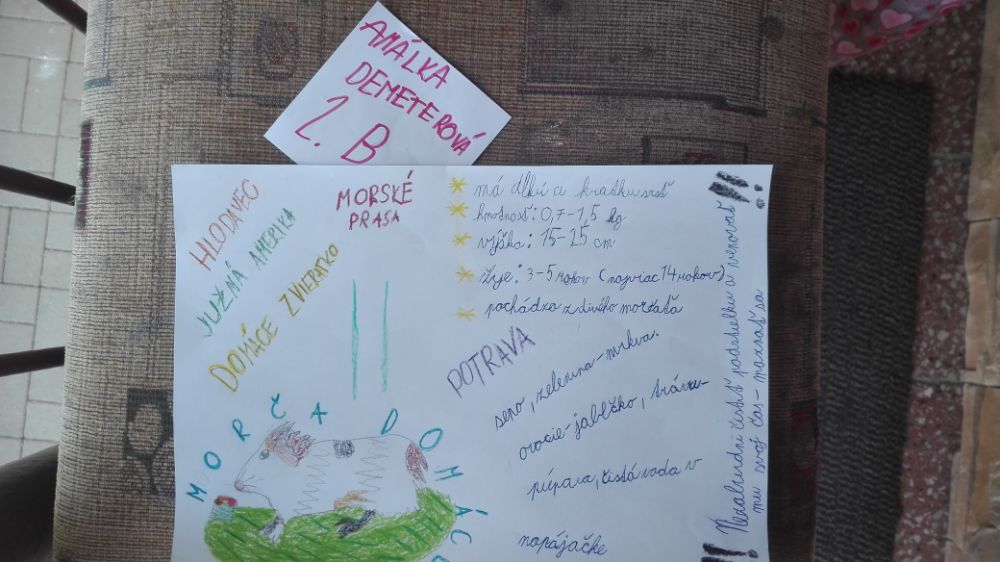 AMÁLKA
DEMETEROVÁ
2. B
HLODAVEC
JUŽNÁ AMERIKA
DOMÁCE ZVIERATKO
MORSKÉ
PRASA
má dlhú a krátku srsť
hmotnosť: 0,7-1,5 kg
výška: 15-25 cm
žije: 3-5 rokov (najviac 14 rokov)
pochádza z divého morčaťa
POTRAVA
seno, zelenina-mrkva.
ovocie-jabĺčko, tráva-
púpava, čistá voda v
napájačke
MORČA DOMÁCE
!! Nezabudni čistiť podstielku a venovať !!
mu svoj čas - maznať sa